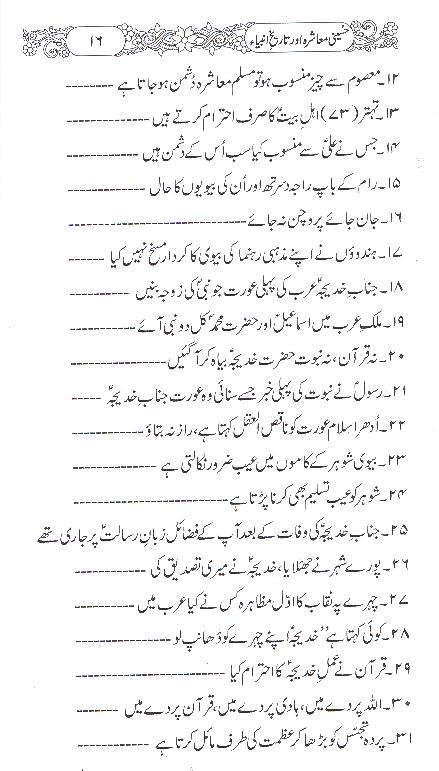 حسینی معاشرہ اور تاریخ انبیاء
۱۶
۱۲۔ معصوم سے چیز منسوب ہو تو مسلم معاشرہ دُشمن ہو جاتا ہے --------
۱۳۔ تہتر (۷۳) اہلِ بیتؑ کا صرف احترام کرتے ہیں --------------
۱۴۔ جس نے علیؑ سے منسوب کیا سب اُس کے دُشمن ہیں ------------
۱۵۔ رام کے باپ راجہ دسرتھ اور اُن کی بیویوں کا حال -------------
۱۶۔ جان جائے پر وچن نہ جائے ----------------------------
۱۷۔ ہندوؤں نے اپنے مذہبی رہنما کی بیوی کا کردار مسخ نہیں کیا ------
۱۸۔ جناب خدیجہؑ عرب کی پہلی عورت جو نبیؐ کی زوجہ بنیں ---------
۱۹۔ ملکِ عرب میں اسماعیلؑ اور حضرت محمدؐ کل دو نبی آئے ---------
۲۰۔ نہ قرآن، نہ نبوت حضرت خدیجہؑ بیاہ کر آگئیں -------------
۲۱۔ رسولؐ نے نبوت کی پہلی خبر جسے سنائی وہ عورت جنابِ خدیجہؑ -----
۲۲۔ اُدھر اسلام عورت کو ناقص العقل کہتا ہے، راز نہ بتاؤ ----------
۲۳۔ بیوی شوہر کے کاموں میں عیب ضرور نکالتی ہے -------------
۲۴۔ شوہر کو عیب تسلیم بھی کرنا پڑتا ہے -----------------------
۲۵۔ جنابِ خدیجہؑ کی وفات کے بعد آپ کے فضائل زبانِ رسالتؐ پر جاری تھے
۲۶۔ پورے شہر نے جھٹلایا، خدیجہؑ نے میری تصدیق کی -----------
۲۷۔ چہرے پہ نقاب کا اوّل مظاہرہ کس نے کیا عرب میں ----------
۲۸۔ کوئی کہتا ہے ”خدیجہؑ اپنے چہرے کو ڈھانپ لو --------------
۲۹۔ قرآن نے عملِ خدیجہؑ کا احترام کیا -----------------------
۳۰۔ اللہ پردے میں، ہادی پردے میں، قرآن پردے میں -------
۳۱۔ پردہ تجسّس کو بڑھا کر عظمت کی طرف مائل کرتا ہے -----------